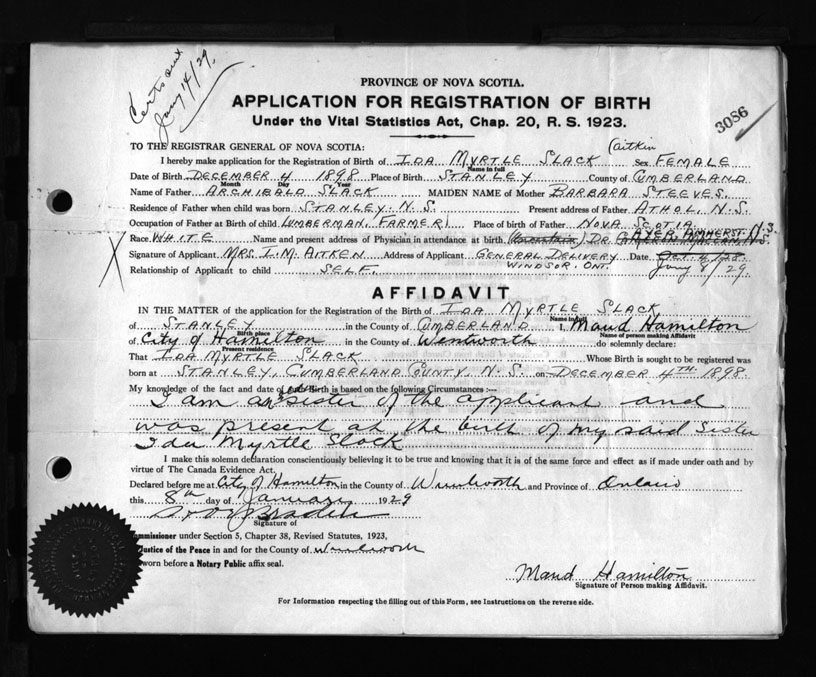 Certs sent
Jany 14/29
3086
PROVINCE OF NOVA SCOTIA.
APPLICATION FOR REGISTRATION OF BIRTH
Under the Vital Statistics Act, Chap. 20, R. S. 1923.
TO THE REGISTRAR GENERAL OF NOVA SCOTIA: (aitkin
I hereby make application for the Registration of Birth of IDA MYRTLE SLACK Sex FEMALE
Name in full
Date of Birth DECEMBER 4 1898 Place of Birth STANLEY County of CUMBERLAND
Month Day Year
Name of Father ARCHIBALD SLACK MAIDEN NAME of Mother BARBARA STEEVES.
Residence of Father when child was born STANLEY. N.S. Present address of Father ATHOL. N.S.
Occupation of Father at Birth of child LUMBERMAN, FARMER Place of birth of Father NOVA SCOTIA
Race WHITE Name and present address of Physician in attendance at birth DR. AMHERST N.S.
Signature of Applicant MRS. I. M. AITKEN Address of Applicant GENERAL DELIVERY Date Oct. 4/28.
Relationship of Applicant to child SELF. WINDSOR. ONT. Jany 8/29
AFFIDAVIT
IN THE MATTER of the application for the Registration of the Birth of IDA MYRTLE SLACK
Name in full
of STANLEY in the County of CUMBERLAND I, Maud Hamilton
Birth place Name of person making Affidavit
of City of Hamilton in the County of Wentworth do solemnly declare:
Present residence
That IDA MYRTLE SLACK Whose Birth is sought to be registered was
born at STANLEY, CUMBERLAND COUNTY, N.S. on DECEMBER 4TH. 1898.
My knowledge of the fact and date of said Birth is based on the following Circumstances:—
I am a sister of the applicant and
was present at the birth of my said Sister
Ida Myrtle Slack
I make this solemn declaration conscientiously believing it to be true and knowing that it is of the same force and effect as if made under oath and by
virtue of The Canada Evidence Act.
Declared before me at City of Hamilton in the County of Wentworth and Province of Ontario
this 8th day of January 1929
Signature of
Commissioner under Section 5, Chapter 38, Revised Statutes, 1923,
Justice of the Peace in and for the County of Wentworth
sworn before a Notary Public affix seal.
Maud Hamilton
Signature of Person making Affidavit.
For Information respecting the filling out of this Form, see Instructions on the reverse side.